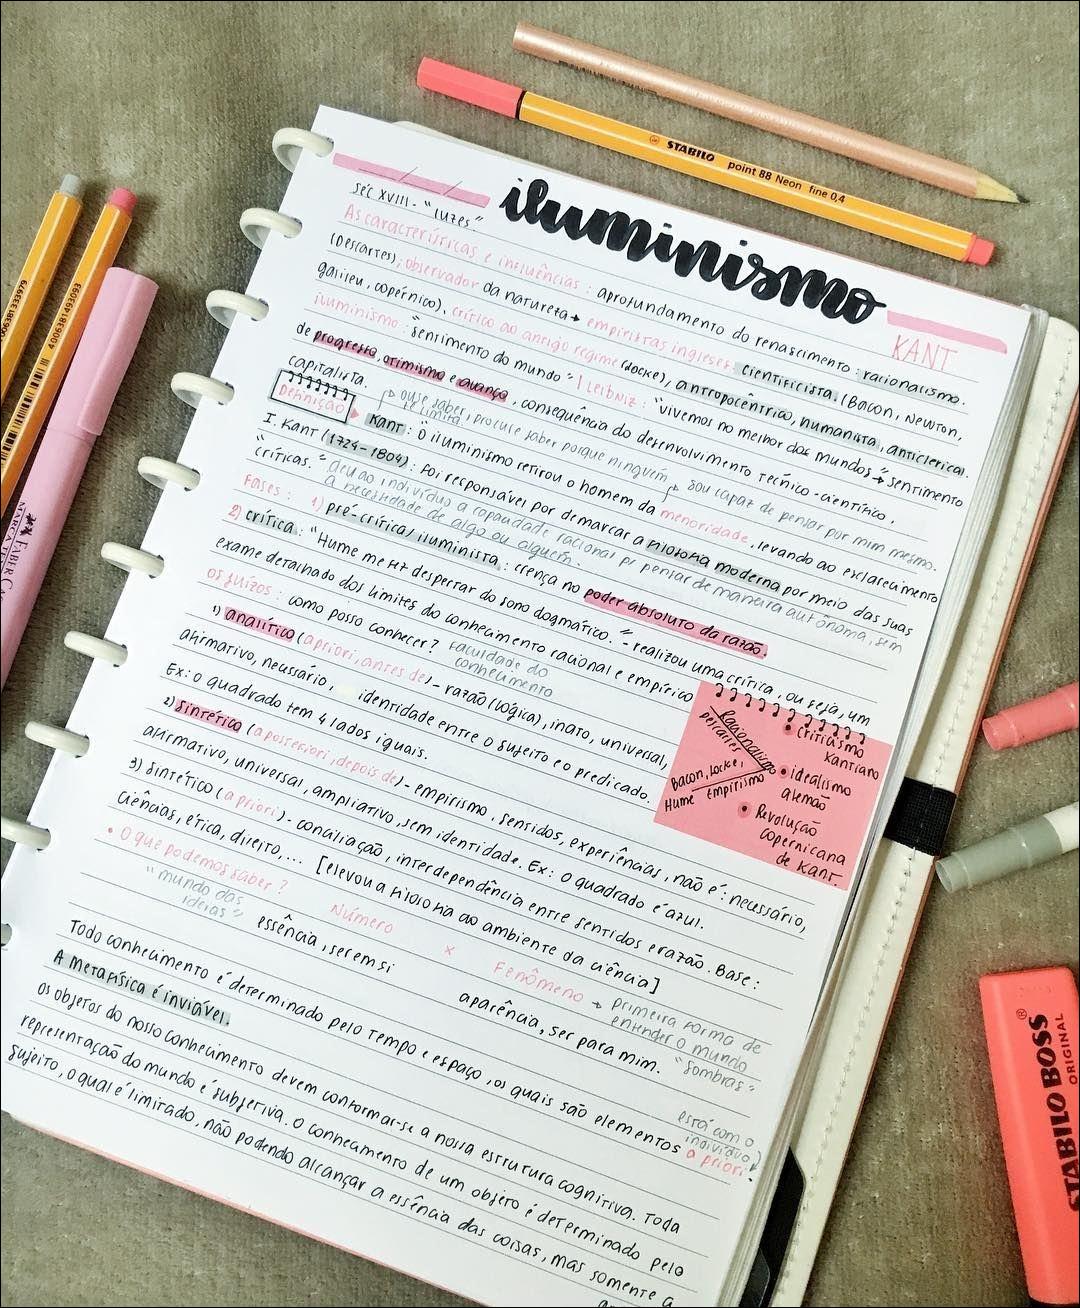 STABILO point 88 Neon fine 0,4
iluminismo
KANT
séc XVIII - "luzes"
As características e influências : aprofundamento do renascimento : racionalismo.
(Descartes); observador da natureza → empiristas ingleses, cientificista. (Bacon, Newton,
galileu, copérnico), crítico ao antigo regime (Locke), antropocêntrico, humanista, anticlerical
iluminismo : "sentimento do mundo" | Leibniz : "vivemos no melhor dos mundos" → sentimento
de progresso, otimismo e avanço, consequência do desenvolvimento técnico-científico,
capitalista.
ouse saber, procure saber porque ninguém te limita
sou capaz de pensar por mim mesmo.
Definição
Kant : "O iluminismo retirou o homem da menoridade, levando ao esclarecimento
I. Kant (1724-1804) : foi responsável por demarcar a filosofia moderna por meio das suas
"críticas."
deu ao indivíduo a capacidade racional de pensar de maneira autônoma, sem
a necessidade de algo ou alguém.
Fases : 1) pré-crítica/iluminista : crença no poder absoluto da razão.
2) crítica : "Hume me fez despertar do sono dogmático." - realizou uma crítica, ou seja, um
exame detalhado dos limites do conhecimento racional e empírico
os juízos : como posso conhecer? faculdade do
conhecimento
1) analítico (a priori, antes de) - razão (lógica), inato, universal,
afirmativo, necessário, identidade entre o sujeito e o predicado.
Ex: o quadrado tem 4 lados iguais.
2) sintético (a posteriori, depois de) - empirismo, sentidos, experiências, não é : necessário,
afirmativo, universal, ampliativo, sem identidade. Ex: o quadrado é azul.
3) sintético (a priori) - conciliação, interdependência entre sentidos e razão. Base :
ciências, ética, direito,... [elevou a filosofia ao ambiente da ciência]
Racionalismo
Descartes
Bacon, Locke,
Hume Empirismo
criticismo
kantiano
idealismo
alemão
Revolução
copernicana
de Kant.
• O que podemos saber?
"mundo das
ideias"
Número
essência, ser em si
x
Fenômeno → primeira forma de
entender o mundo
"sombras"
aparência, ser para mim.
Todo conhecimento é determinado pelo tempo e espaço, os quais são elementos a priori.
está com o
indivíduo
A metafísica é inviável.
Os objetos do nosso conhecimento devem conformar-se a nossa estrutura cognitiva. Toda
representação do mundo é subjetiva. O conhecimento de um objeto é determinado pelo
sujeito, o qual é limitado, não podendo alcançar a essência das coisas, mas somente a
4006381333979
4006381493093
FABER-CA
STABILO BOSS
ORIGINAL